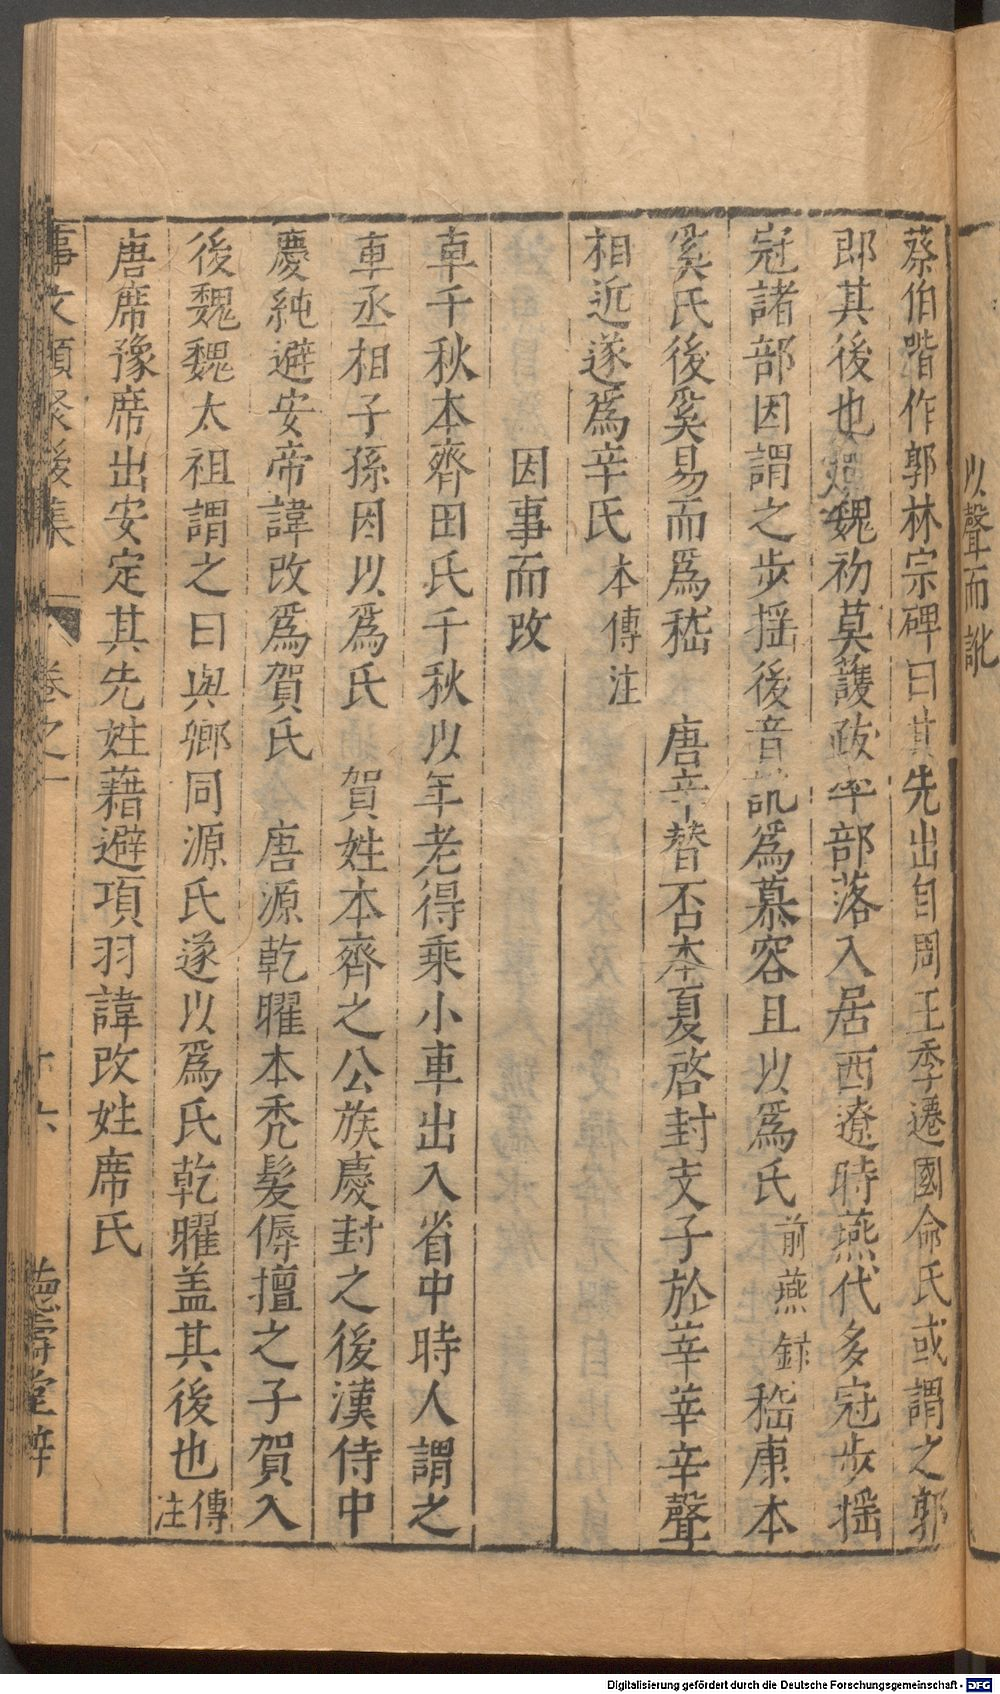 以聲而訛
蔡伯喈作郭林宗碑曰其先出自周王季遷國命氏或謂之郭
郎其後也 魏初莫護跋率部落入居西遼時燕代多冠步搖
冠諸部因謂之步搖後音訛爲慕容且以爲氏 前燕錄 嵇康本
奚氏後奚易而爲嵇 唐辛替否本夏啓封支子於莘莘辛聲
相近遂爲辛氏 本傳注
因事而改
車千秋本齊田氏千秋以年老得乘小車出入省中時人謂之
車丞相子孫因以爲氏 賀姓本齊之公族慶封之後漢侍中
慶純避安帝諱改爲賀氏 唐源乾曜本禿髮傉檀之子賀入
後魏魏太祖謂之曰與卿同源氏遂以爲氏乾曜盖其後也 傳注
唐席豫席出安定其先姓藉避項羽諱改姓席氏
事文類聚後集 卷之一 十六 德壽堂梓
Digitalisierung gefördert durch die Deutsche Forschungsgemeinschaft - DFG